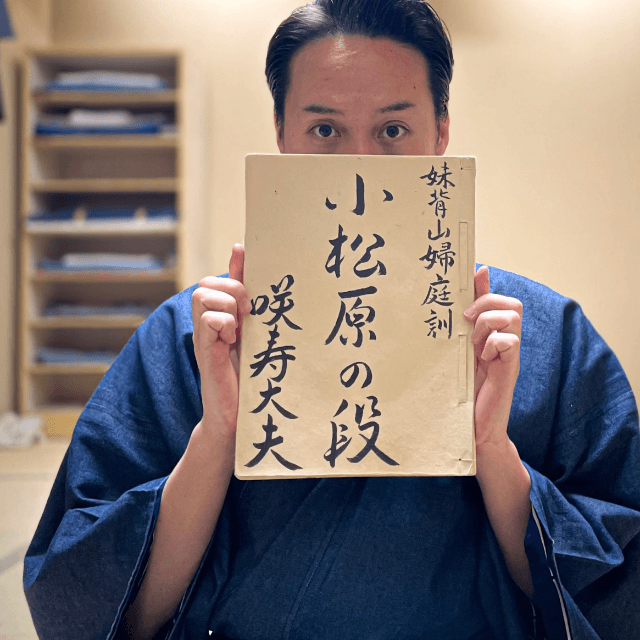 妹背山婦庭訓
小松原の段
咲寿太夫